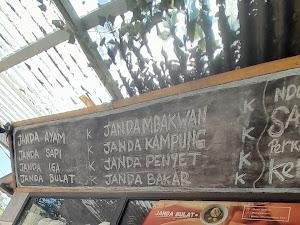 JANDA AYAM K JANDA MBAKWAN K
JANDA SAPI K JANDA KAMPUNG K
JANDA IGA K JANDA PENYET K
JANDA BULAT K JANDA BAKAR K
JANDA BULAT